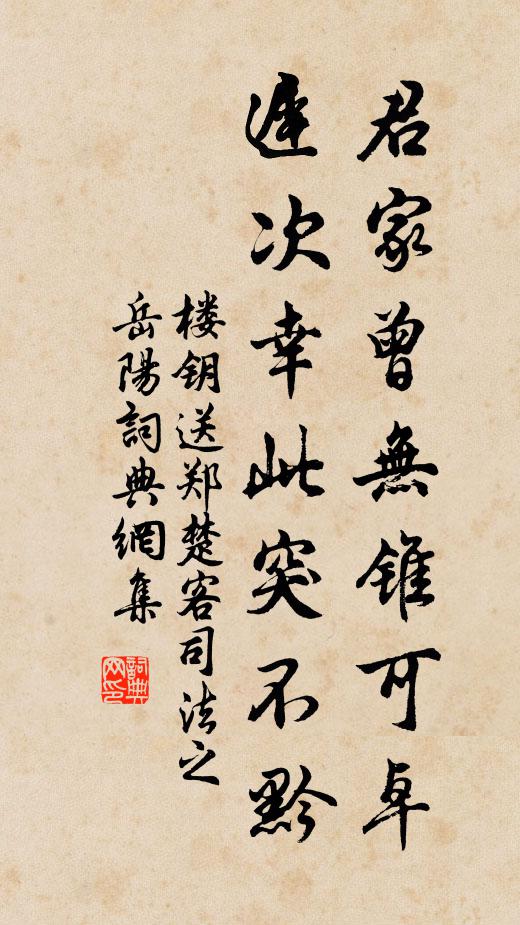 君家曾無錐可卓
遲次幸此突不黔
楼钥送郑楚客司法之
岳陽詞典網集
詞典网印